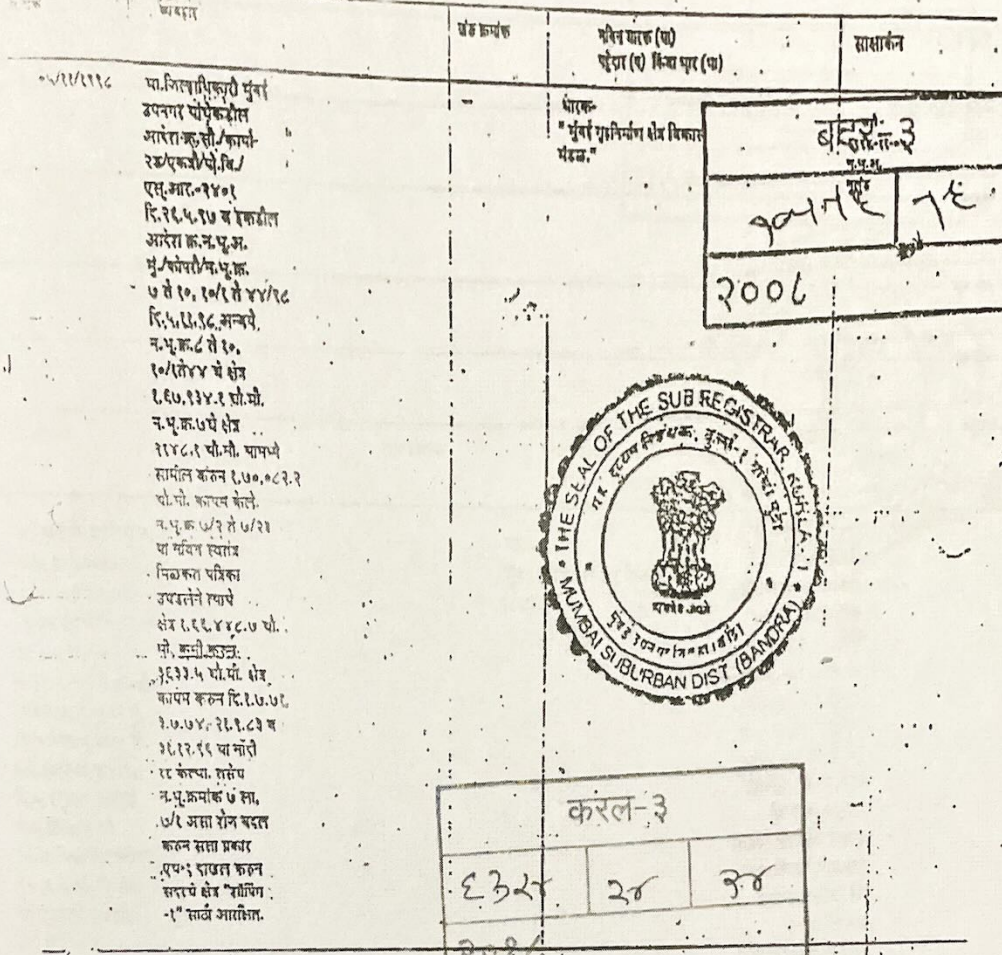 व्यवहार
खंड क्रमांक
नविन धारक (धा)
पट्टेदार (प) किंवा भार (भा)
साक्षांकन
०५/११/१९९८
मा.जिल्हाधिकारी मुंबई
उपनगर यांचेकडील
आदेश क्र.सी./कार्या-
२ड/एकत्री/पो.वि./
एस्.आर.-२४०१
दि.२६.५.९७ व इकडील
आदेश क्र.न.भू.अ.
मु./कोपरी/न.भू.क्र.
७ ते १०, १०/१ ते ४४/९८
दि.५.११.९८ अन्वये
न.भू.क्र.८ ते १०,
१०/१ते४४ चे क्षेत्र
१,६७,९३४.१ चौ.मी.
न.भू.क्र.७चे क्षेत्र
२१४८.१ चौ.मी. यामध्ये
सामील करुन १,७०,०८२.२
चौ.मी. कायम केले.
न.भू.क्र ७/२ ते ७/२३
या नविन स्वतंत्र
मिळकत पत्रिका
उघडलेने त्याचे
क्षेत्र १,६६,४४८.७ चौ.
मी. कमी करुन
३६३३.५ चौ.मी. क्षेत्र
कायम करुन दि.१.७.७१,
३.७.७४, २१.९.८३ व
३१.१२.९६ या नोंदी
रद्द केल्या. तसेच
न.भू.क्रमांक ७ ला.
७/१ असा रोन बदल
करुन सत्ता प्रकार
एच-१ दाखल करुन
सदरचे क्षेत्र "शॉपिंग
-१" साठी आरक्षित.
धारक-
" मुंबई गृहनिर्माण क्षेत्र विकास
मंडळ."
२००८
THE SEAL OF THE SUB REGISTRAR, KURLA-1
MUMBAI SUBURBAN DIST (BANDRA)
सत्यमेव जयते
करल-३
२४
३४